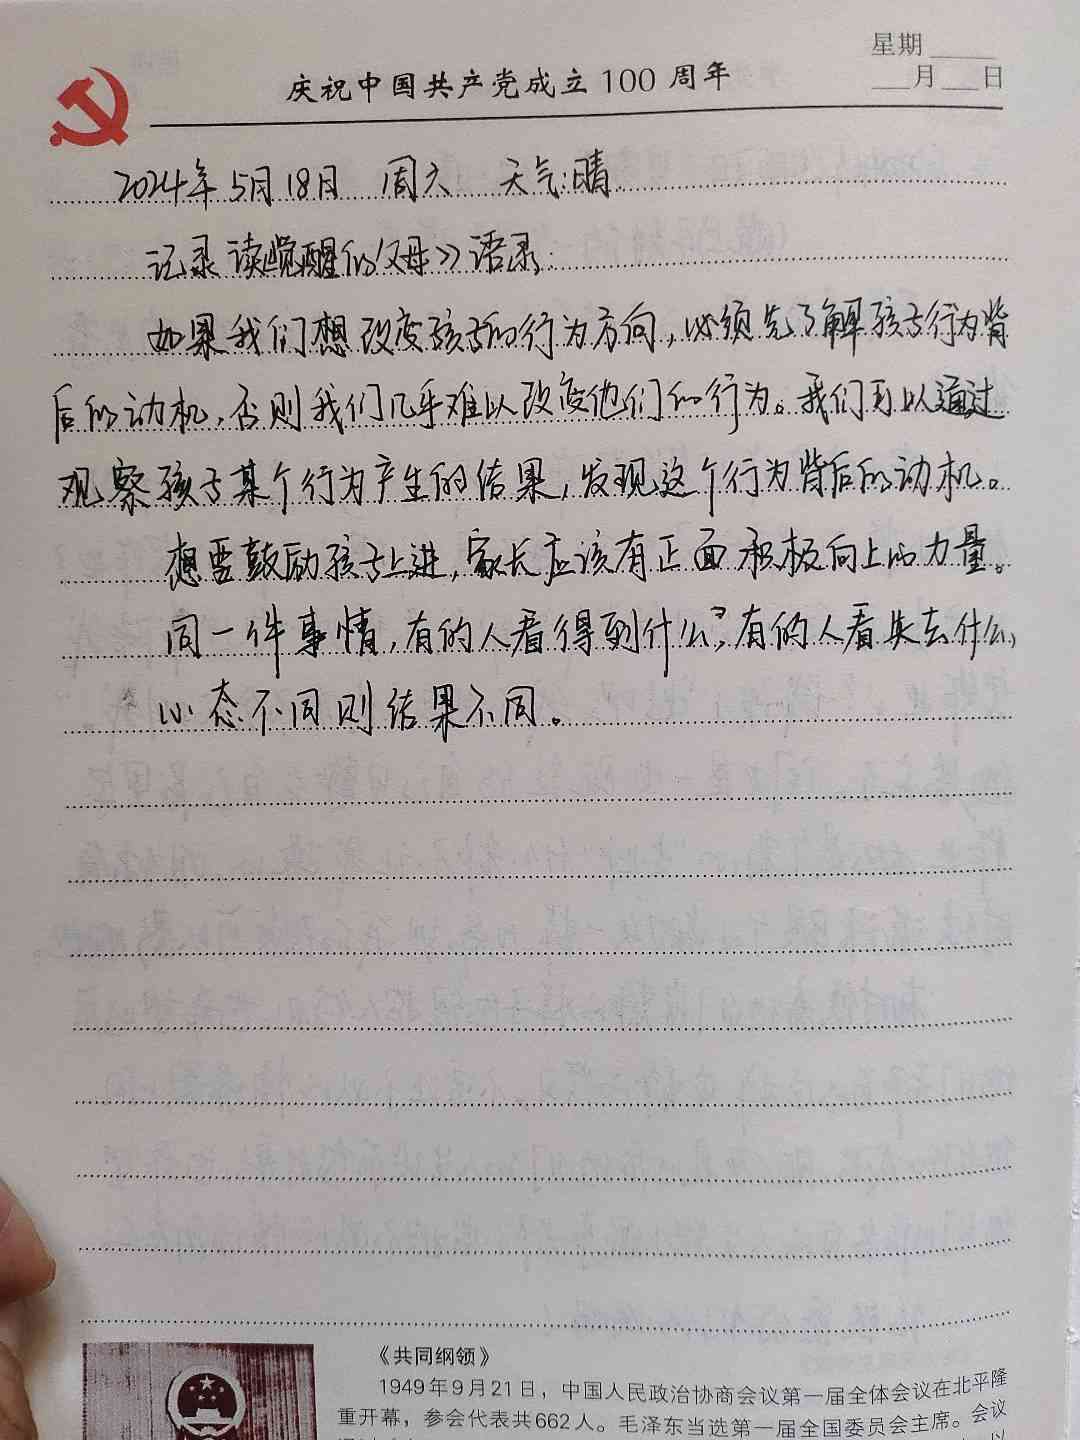 星期
月 日
庆祝中国共产党成立 100 周年
2024年5月18日 周六 天气:晴
记录读觉醒的父母》语录:
如果我们想改变孩子的行为方向,必须先了解孩子行为背
后的动机,否则我们几乎难以改变他们的行为。我们可以通过
观察孩子某个行为产生的结果,发现这个行为背后的动机。
想要鼓励孩子上进,家长应该有正面积极向上的力量。
同一件事情,有的人看得到什么?,有的人看失去什么,
心态不同则结果不同。
《共同纲领》
1949年9月21日,中国人民政治协商会议第一届全体会议在北平隆
重开幕,参会代表共662人。毛泽东当选第一届全国委员会主席。会议